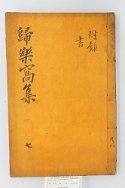 歸樂窩集
七
附錄
書